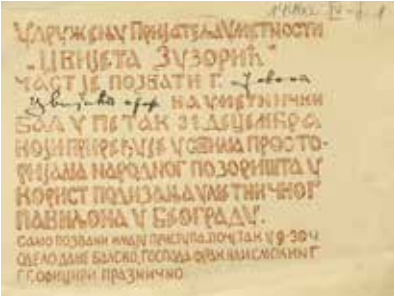 Удружењу Пријатеља Уметности
„Цвијета Зузорић“
част је позвати г.
на уметнички
бал у петак 21 децембра
који приређује у свима просто-
ријама Народног Позоришта у
корист подизања Уметничког
Павиљона у Београду.
Само позвани имају приступа. Почетак у 9·30 ч
Одело даме балско, господа фрак или смокинг
г.г. официри празнично